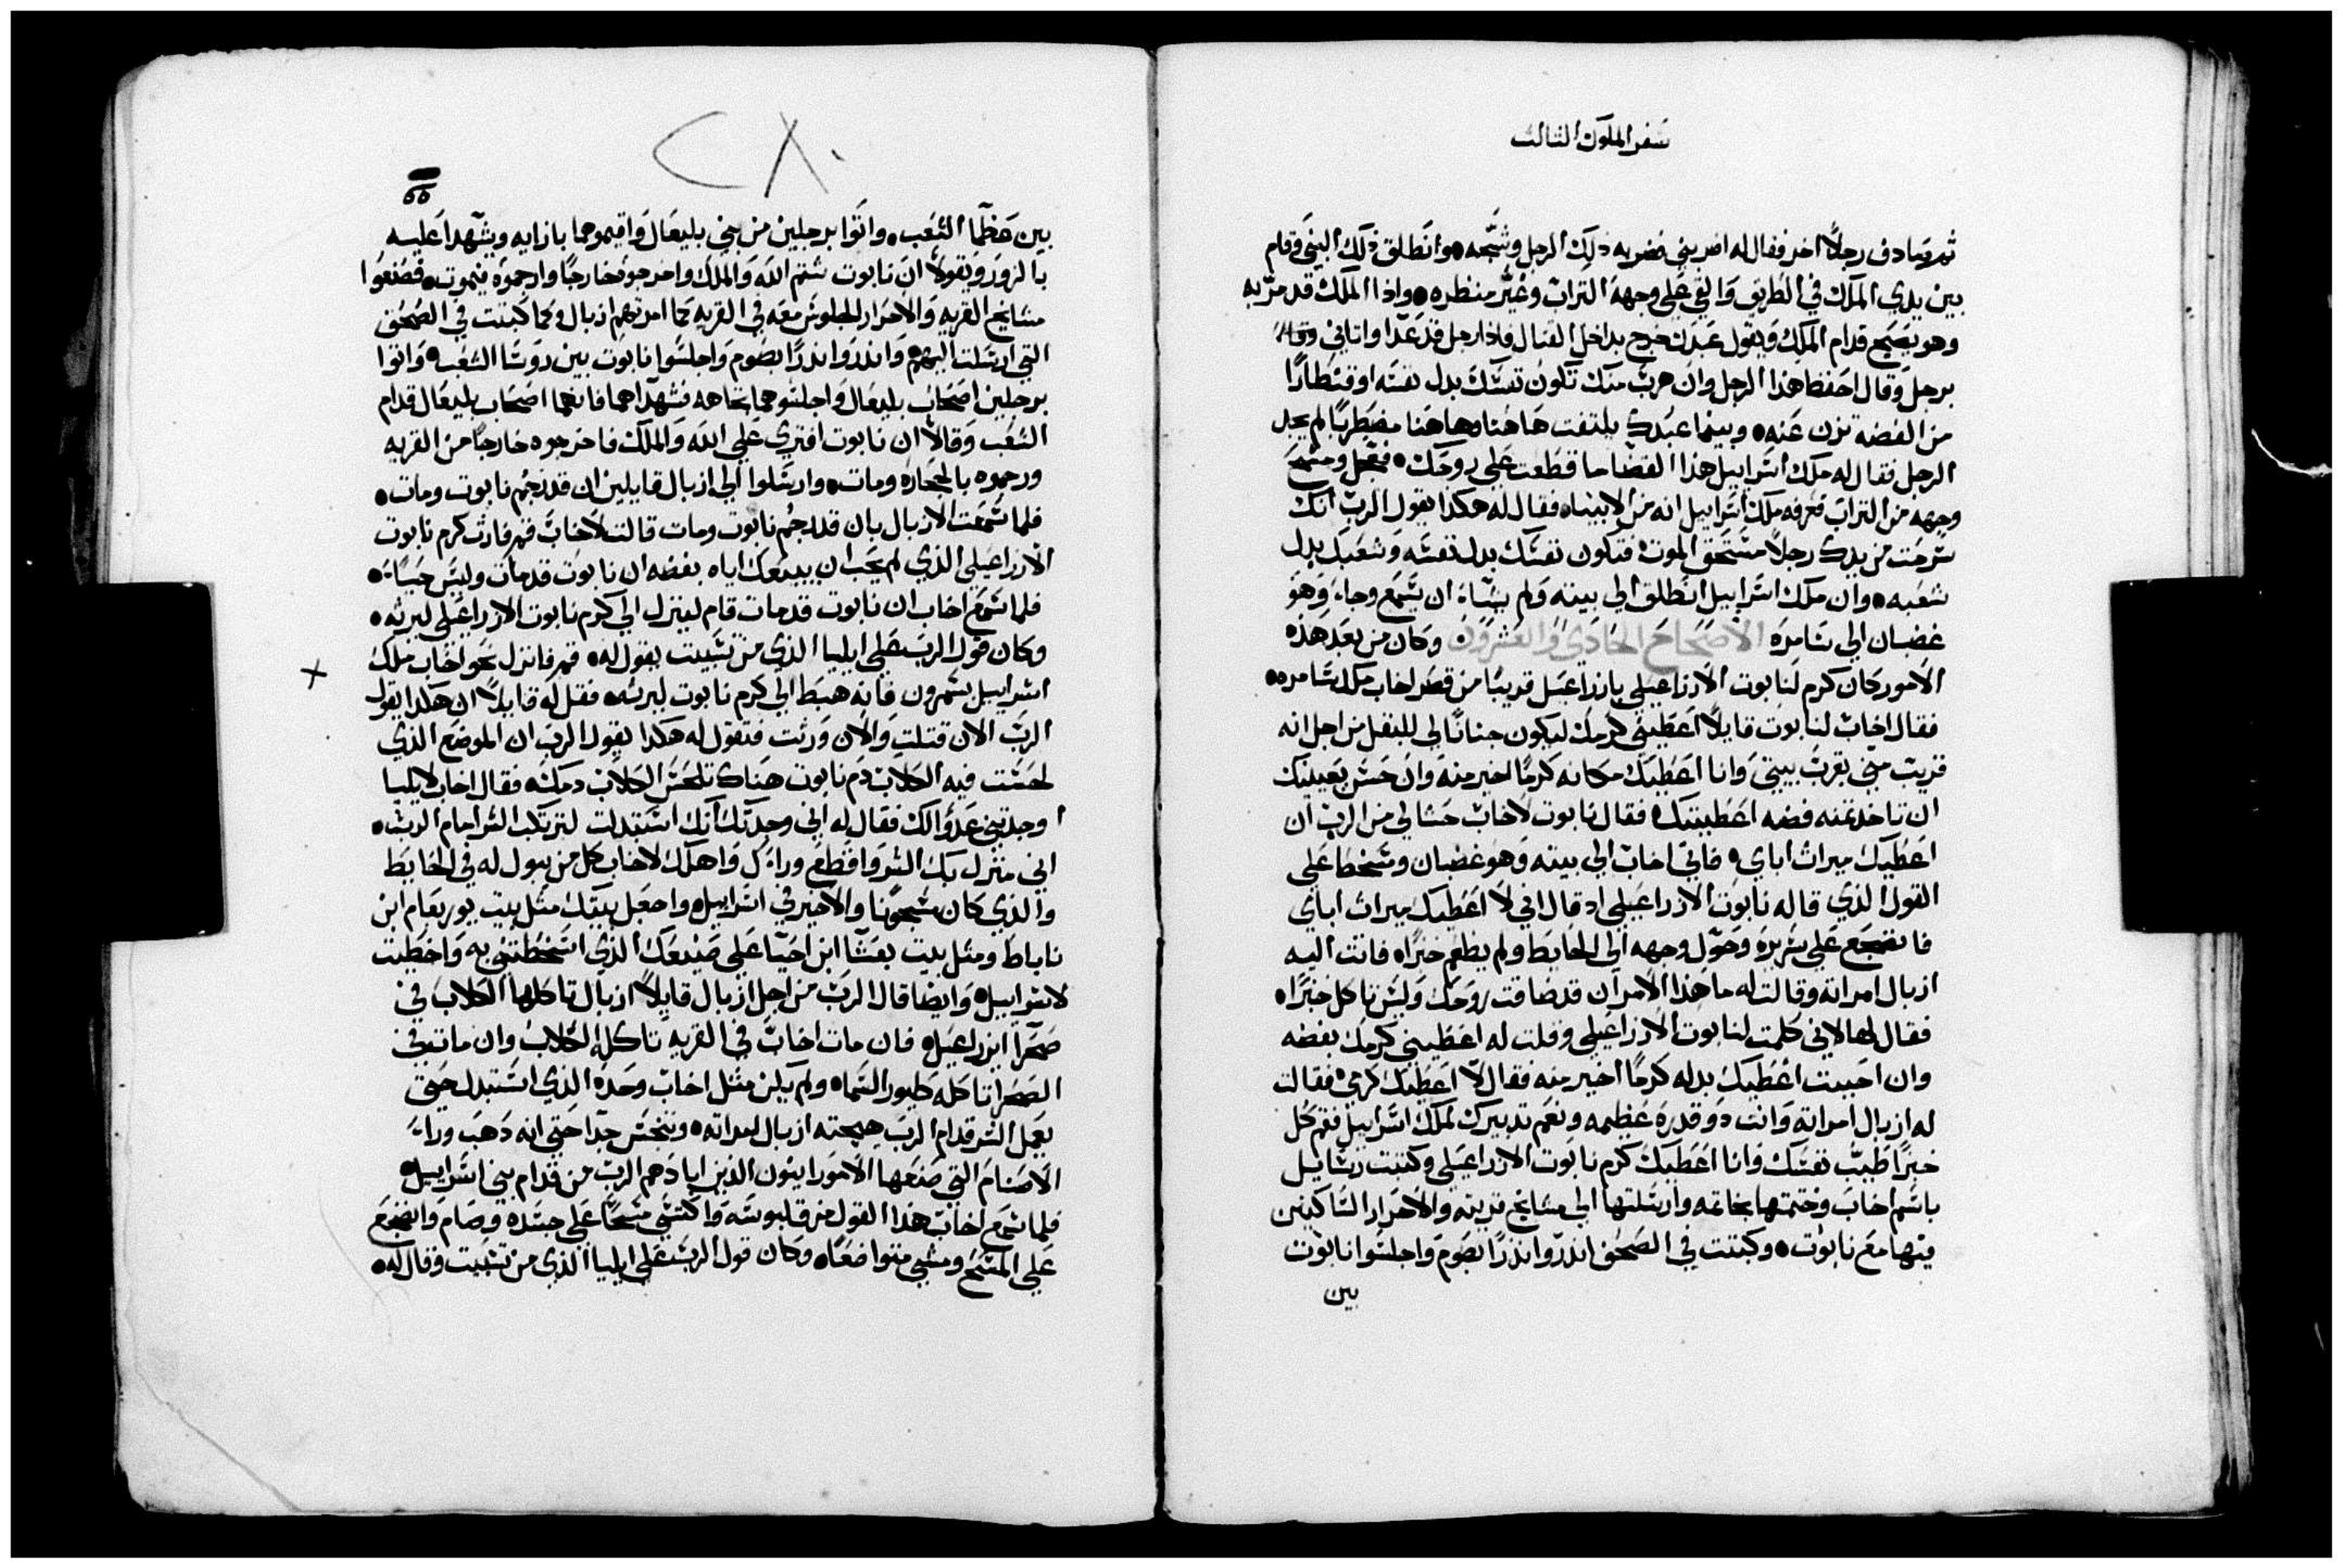 سفر الملوك الثالث
ثم صادف رجلاً اخر فقال له اضربني فضربه ذلك الرجل وشجّه وانطلق ذلك النبي وقام
بين يدي الملك في الطريق والقي علي وجهه التراب وغيّر منظره واذا الملك قد مرّ به
وهو يصيح قدام الملك ويقول عبدك خرج بداخل القتال فاذا رجل قد عدا واتاني
برجل وقال احفظ هذا الرجل وان هرب منك تكون نفسك بدل نفسه او قنطارًا
من الفضه تزن عنه وبينما عبدك يلتفت هاهنا وهاهنا مضطربًا لم يجد
الرجل فقال له ملك اسراييل هذا القضا ما قطعت علي روحك فعجل ومسح
وجهه من التراب فعرفه ملك اسراييل انه من الانبياء فقال له هكذا يقول الرب انك
سرحت من يدك رجلاً مستحق الموت فتكون نفسك بدل نفسه وشعبك بدل
شعبه وان ملك اسراييل انطلق الي بيته ولم يشاء ان يسمع وجاء وهو
غضبان الي سامره الاصحاح الحادي والعشرون وكان من بعد هذه
الامور كان كرم لنابوت الازراعيلي بازراعيل قريبًا من قصر اخاب ملك سامره
فقال اخاب لنابوت قايلاً اعطيني كرمك ليكون جنانًا لي للبقل من اجل انه
قريب مني بقرب بيتي وانا اعطيك مكانه كرمًا اخير منه وان حسن بعينيك
ان تاخذ ثمنه فضه اعطيتك فقال نابوت لاخاب حشا لي من الرب ان
اعطيك ميراث اباي فاتي اخاب الي بيته وهو غضبان ومسخط علي
القول الذي قاله نابوت الازراعيلي اد قال اني لا اعطيك ميراث اباي
فانضجع علي سريره وحوّل وجهه الي الحايط ولم يطعم خبزًا فاتت اليه
ازبال امراته وقالت له ما هذا الامر ان قد ضاقت روحك وليس تاكل خبزًا
فقال لها لاني كلمت لنابوت الازراعيلي وقلت له اعطيني كرمك بفضه
وان احببت اعطيك بدله كرمًا اخير منه فقال لا اعطيك كرمي فقالت
له ازبال امراته وانت دو قدره عظيمه ونعم تدبيرك لملك اسراييل فقم كل
خبزًا طيب نفسك وانا اعطيك كرم نابوت الازراعيلي وكتبت رسايل
باسم اخاب وختمتها بخاتمه وارسلتها الي مشايخ قريته والاحرار الساكنين
فيها مع نابوت وكتبت في الصحف اندروا ندرًا بصوم واجلسوا نابوت
بين
66
بين عظما الشعب واتوا برجلين من بني بليعال واقيموهما بازايه ويشهدا عليه
بالزور ويقولا ان نابوت شتم الله والملك واخرجوه خارجًا وارجموه فيموت فصنعوا
مشايخ القريه والاحرار الجلوس معه في القريه كما امرتهم ازبال وكما كتبت في الصحف
التي ارسلت اليهم واندروا ندرًا بصوم واجلسوا نابوت بين روسا الشعب واتوا
برجلين اصحاب بليعال واجلسوهما تجاهه فشهدا هما فانهما اصحاب بليعال قدام
الشعب وقالا ان نابوت افتري علي الله والملك فاخرجوه خارجًا من القريه
ورجموه بالحجاره ومات وارسلوا الي ازبال قايلين ان قد رجم نابوت ومات
فلما سمعت الازبال بان قد رجم نابوت ومات قالت لاخاب قم فارث كرم نابوت
الازراعيلي الذي لم يحب ان يبيعك اياه بفضه ان نابوت قد مات وليس حيًا
فلما سمع اخاب ان نابوت قد مات قام لينزل الي كرم نابوت الازراعيلي ليرثه
وكان قول الرب علي ايليا الذي من تشبيت يقول له قم فانزل نحو اخاب ملك
اسراييل بشمرون فانه هبط الي كرم نابوت ليرثه فقل له قايلاً ان هكذا يقول
الرب الان قتلت والان ورثت فتقول له هكذا يقول الرب ان الموضع الذي
لحست فيه الكلاب دم نابوت هناك تلحس الكلاب دمك فقال اخاب لايليا
اوجدتني عدوًا لك فقال له اني وجدتك انك استبدلت لترتكب الشر امام الرب
اني منزل بك الشر واقطع وراءك واهلك لاخاب كل من يبول له في الحايط
والذي كان مسجونًا والاخير في اسراييل واجعل بيتك مثل بيت يوربعام ابن
ناباط ومثل بيت بعشا ابن احيا علي صنيعك الذي اسخطتني به واخطيت
لاسراييل وايضا قال الرب من اجل ازبال قايلاً ازبال تاكلها الكلاب في
صحرا ايزراعيل فان مات اخاب في القريه تاكله الكلاب وان مات في
الصحرا تاكله طيور السماء ولم يكن مثل اخاب وحده الذي استبدل حتي
يعمل الشر قدام الرب هيجته ازبال امراته وتنجس جدًا حتي انه دهب وراء
الاصنام التي صنعها الامورانيون الذين ابادهم الرب من قدام بني اسراييل
فلما سمع اخاب هذا القول مزق لبوسه واكتسي مسحًا علي جسده وصام وانضجع
علي المسح ومشي متواضعًا وكان قول الرب علي ايليا الذي من تشبيت وقال له